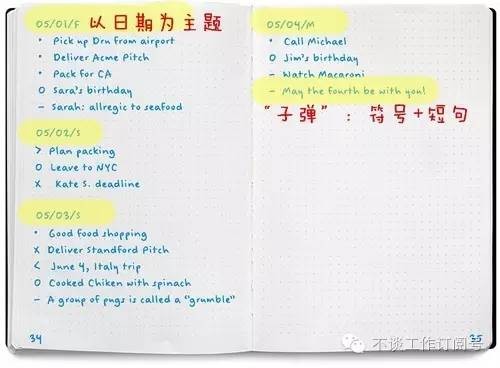 05/01/F 以日期为主题
• Pick up Dru from airport
• Deliver Acme Pitch
• Pack for CA
O Sara's birthday
– Sarah: allregic to seafood
05/02/S
> Plan packing
O Leave to NYC
x Kate S. deadline
05/03/S
• Good food shopping
x Deliver Standford Pitch
< June 4, Italy trip
O Cooked Chiken with spinach
– A group of pugs is called a "grumble"
34
05/04/M
• Call Michael
O Jim's birthday
– Watch Macaroni
– May the fourth be with you!
"子弹"：符号+短句
35
不谈工作订阅号